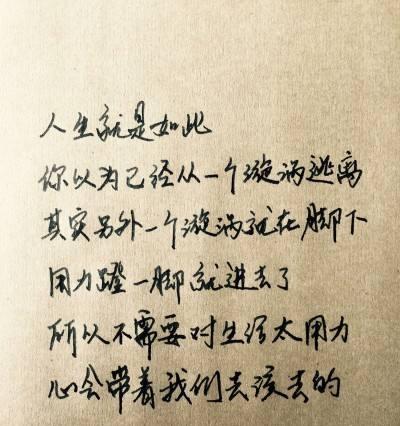 人生就是如此
你以为已经从一个漩涡逃离
其实另外一个漩涡就在脚下
用力蹬一脚就进去了
所以不需要对生活太用力
心会带着我们去该去的